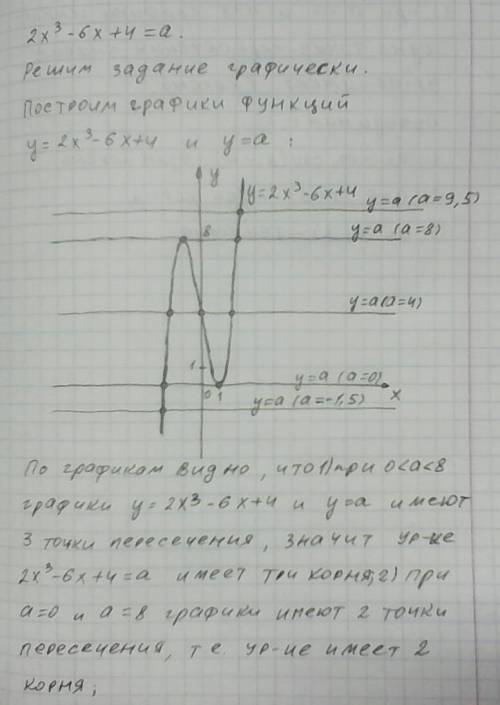 2x³-6x+4=a.
Решим задание графически.
Построим графики функций
y=2x³-6x+4 и y=a :
y
y=2x³-6x+4
y=a (a=9,5)
8
y=a (a=8)
y=a (a=4)
1
y=a (a=0)
0 1
x
y=a (a=-1,5)
По графикам видно, что 1) при 0<a<8
графики y=2x³-6x+4 и y=a имеют
3 точки пересечения, значит ур-ие
2x³-6x+4=a имеет три корня; 2) при
a=0 и a=8 графики имеют 2 точки
пересечения, т.е. ур-ие имеет 2
корня;